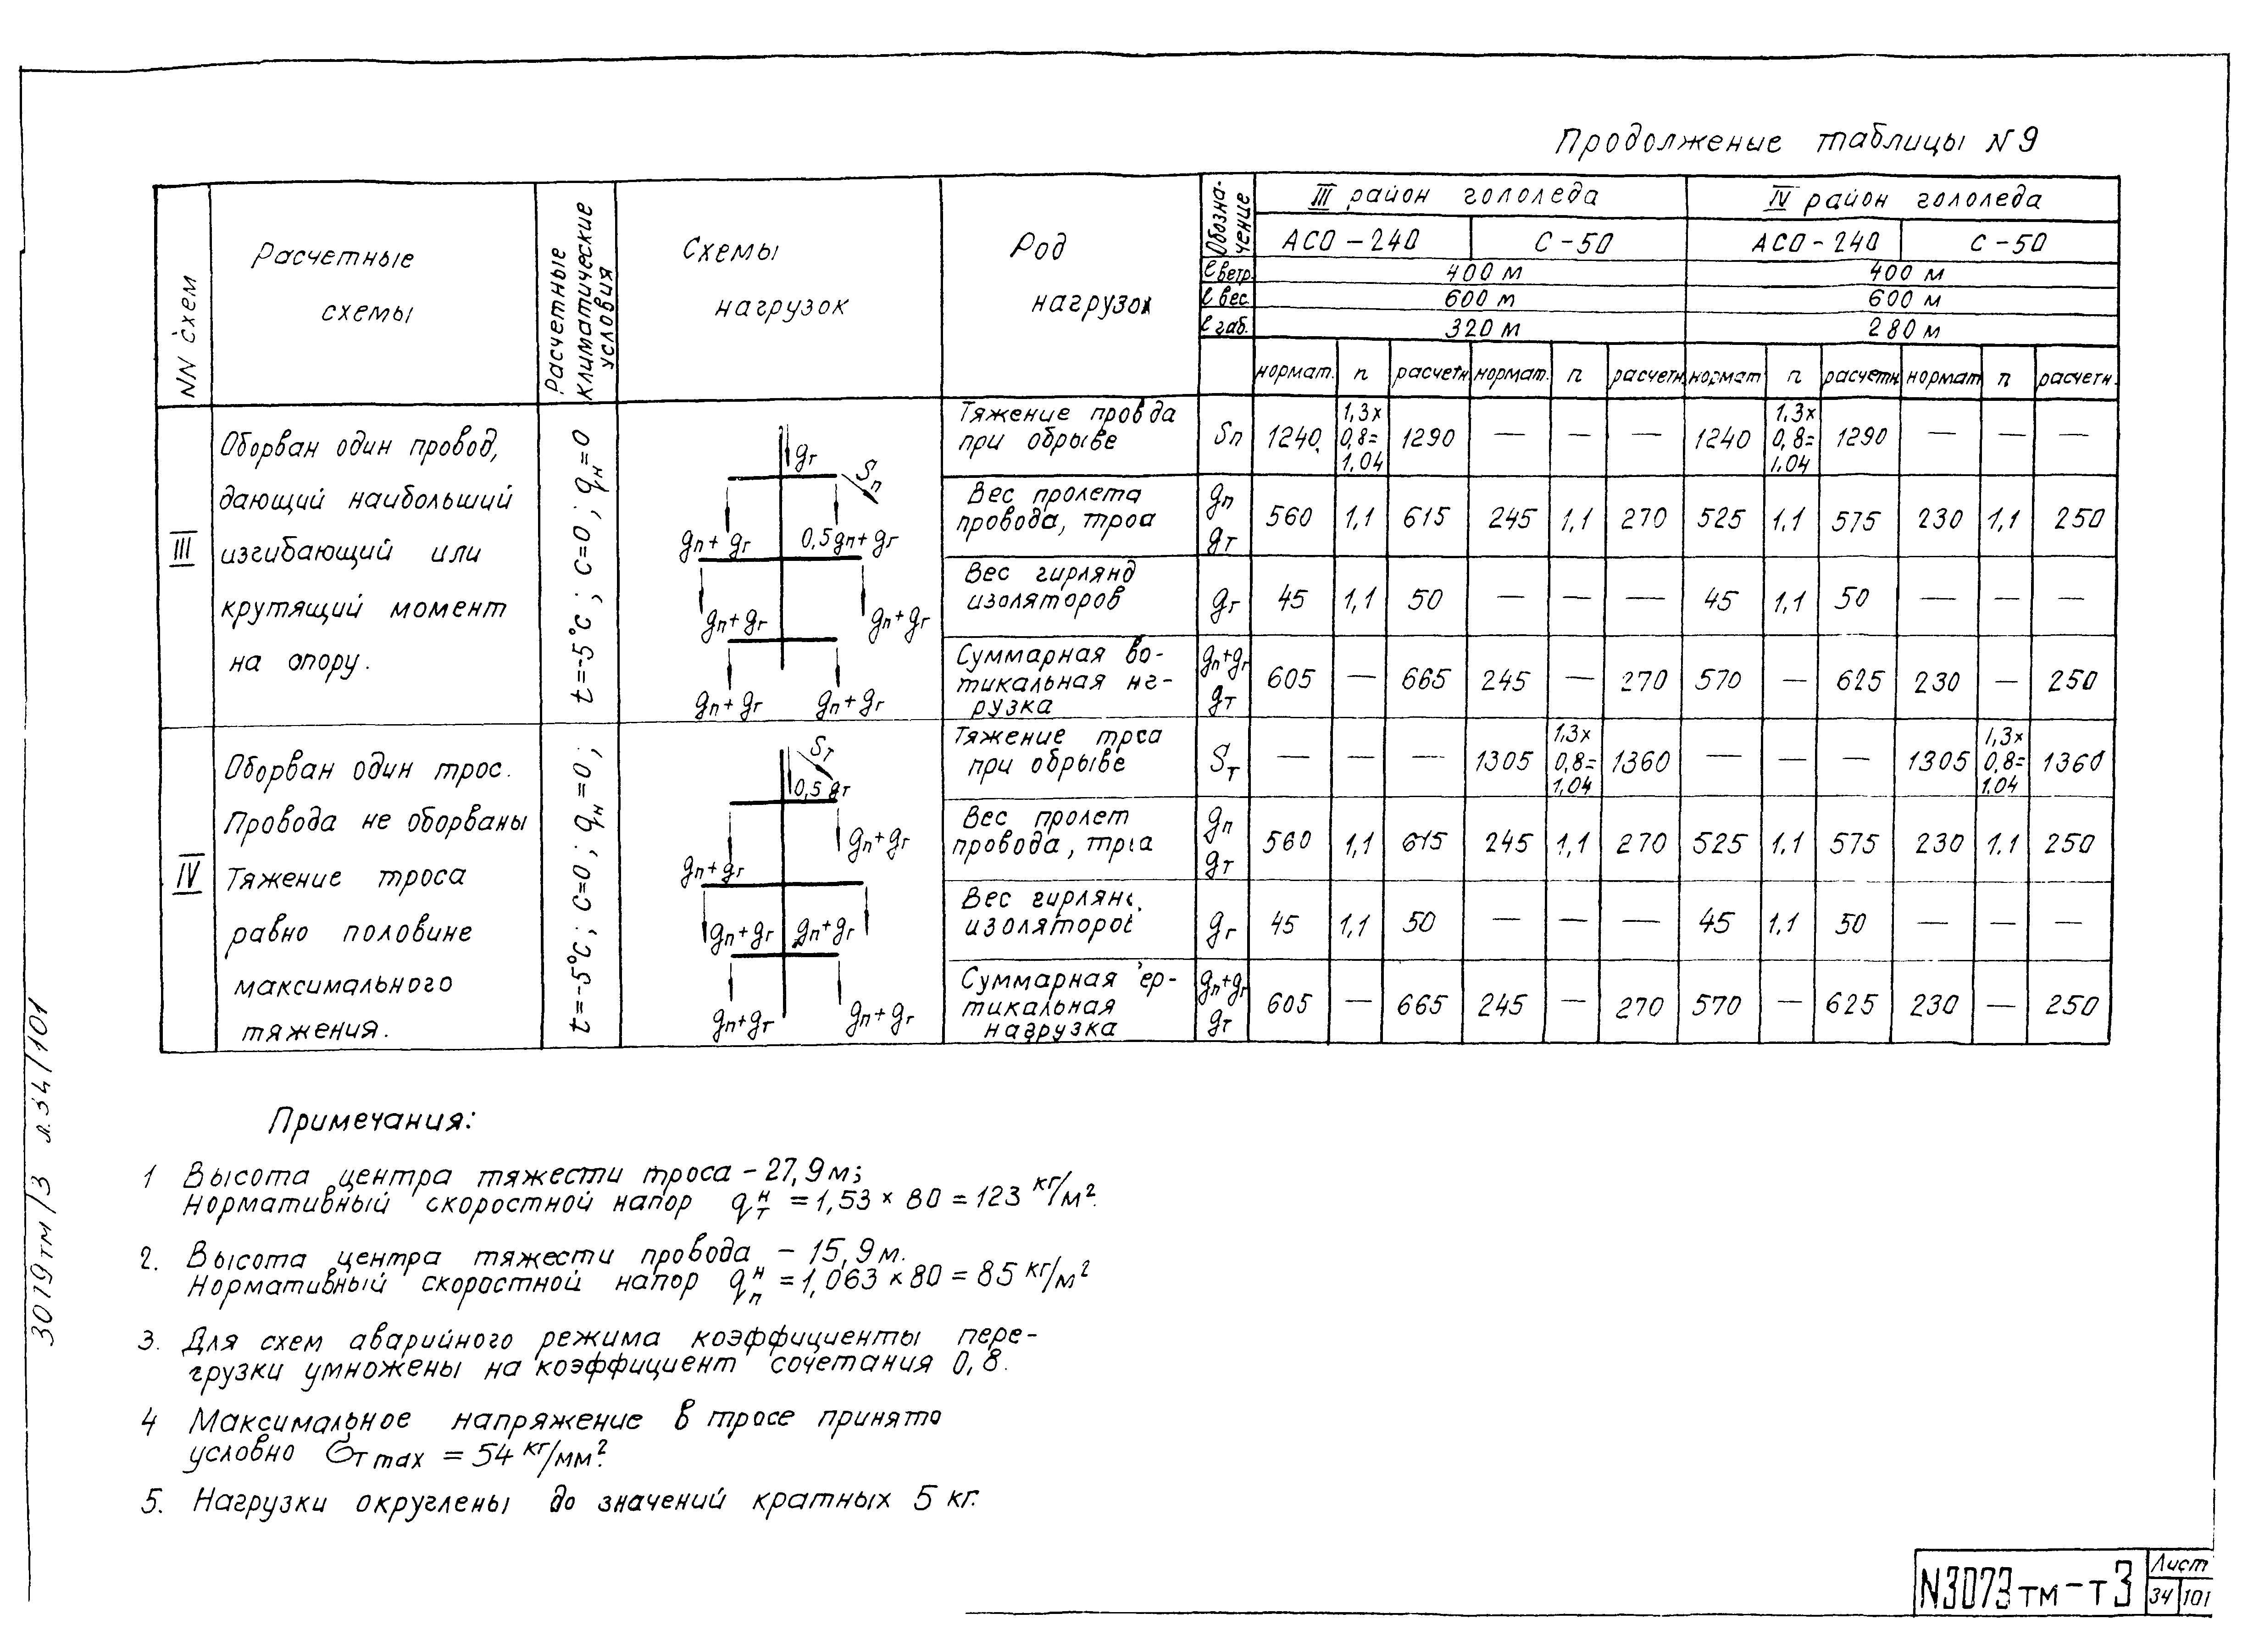 Продолжение таблицы N 9
NN схем
Расчетные
схемы
Расчетные
климатические
условия
Схемы
нагрузок
Род
нагрузок
Обозна-
чение
III район гололеда
IV район гололеда
АСО-240 С-50 АСО-240 С-50
ℓ ветр. 400 м 400 м
ℓ вес. 600 м 600 м
ℓ габ. 320 м 280 м
нормат. n расчетн нормат. n расчетн нормат n расчетн нормат n расчетн.
III
Оборван один провод,
дающий наибольший
изгибающий или
крутящий момент
на опору.
t=-5°c; c=0; qн=0
gг
Sп
gп+gг 0,5gп+gг
gп+gг gп+gг
gп+gг gп+gг
Тяжение провда
при обрыве
Sп 1240 1,3х 0,8= 1.04 1290 — — — 1240 1,3х 0,8= 1,04 1290 — — —
Вес пролета
провода, троа
gп
gт
560 1,1 615 245 1,1 270 525 1,1 575 230 1,1 250
Вес гирлянд
изоляторов
gг 45 1,1 50 — — — 45 1,1 50 — — —
Суммарная во-
тикальная нг-
рузка
gп+gг
gт
605 — 665 245 — 270 570 — 625 230 — 250
IV
Оборван один трос.
Провода не оборваны
Тяжение троса
равно половине
максимального
тяжения.
t=-5°c; c=0; qн=0;
Sт
0,5 gт
gп+gг
gп+gг
gп+gг gп+gг
gп+gг gп+gг
Тяжение трса
при обрыве
Sт — — — 1305 1,3х 0,8= 1,04 1360 — — — 1305 1,3х 0,8= 1.04 1360
Вес пролет
провода, тра
gп
gт
560 1,1 615 245 1,1 270 525 1.1 575 230 1.1 250
Вес гирлян
изоляторов
gг 45 1,1 50 — — — 45 1,1 50 — — —
Суммарная ер-
тикальная
нагрузка
gп+gг
gт
605 — 665 245 — 270 570 — 625 230 — 250
Примечания:
1 Высота центра тяжести троса - 27,9м;
Нормативный скоростной напор qтн = 1,53 × 80 = 123 кг/м².
2. Высота центра тяжести провода - 15,9м.
Нормативный скоростной напор qпн = 1,063 × 80 = 85 кг/м²
3. Для схем аварийного режима коэффициенты пере-
грузки умножены на коэффициент сочетания 0,8.
4 Максимальное напряжение в тросе принято
условно Gт max = 54 кг/мм².
5. Нагрузки округлены до значений кратных 5 кг.
3079тм/3 л.34/101
N3073тм-т3
Лист
34 101